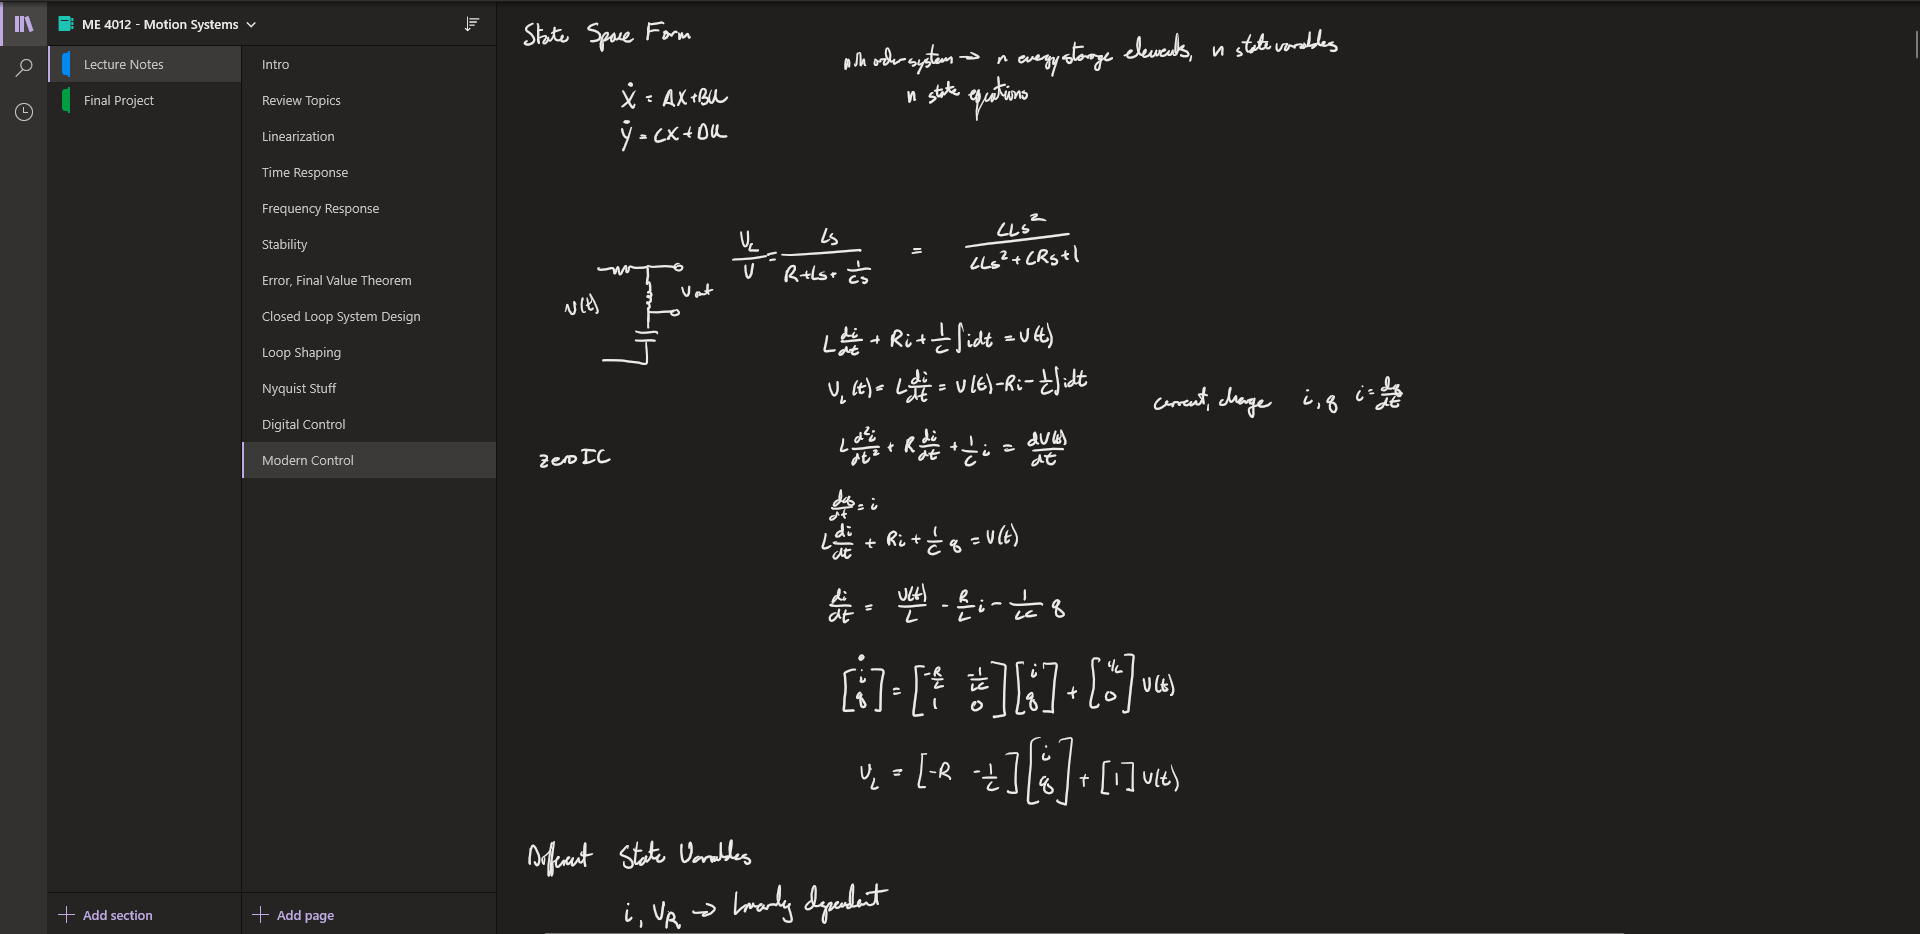 ME 4012 - Motion Systems
Lecture Notes
Final Project
Add section
Intro
Review Topics
Linearization
Time Response
Frequency Response
Stability
Error, Final Value Theorem
Closed Loop System Design
Loop Shaping
Nyquist Stuff
Digital Control
Modern Control
Add page
State Space Form
nth order system → n energy storage elements, n state variables
n state equations
Ẋ = AX+BU
Ẏ = CX+DU
V_L/V = Ls/(R+Ls+1/(Cs)) = CLs²/(CLs²+CRs+1)
V(t)
Vout
L di/dt + Ri + 1/C ∫idt = V(t)
V_L(t) = L di/dt = V(t) - Ri - 1/C ∫idt
current, charge i, q i = dq/dt
L d²i/dt² + R di/dt + 1/C i = dV(t)/dt
zero IC
dq/dt = i
L di/dt + Ri + 1/C q = V(t)
di/dt = V(t)/L - R/L i - 1/LC q
[i q]˙ = [-R/L -1/LC; 1 0] [i q] + [1/L 0] V(t)
V_L = [-R -1/C] [i q] + [1] V(t)
Different State Variables
i, V_R → Linearly dependent